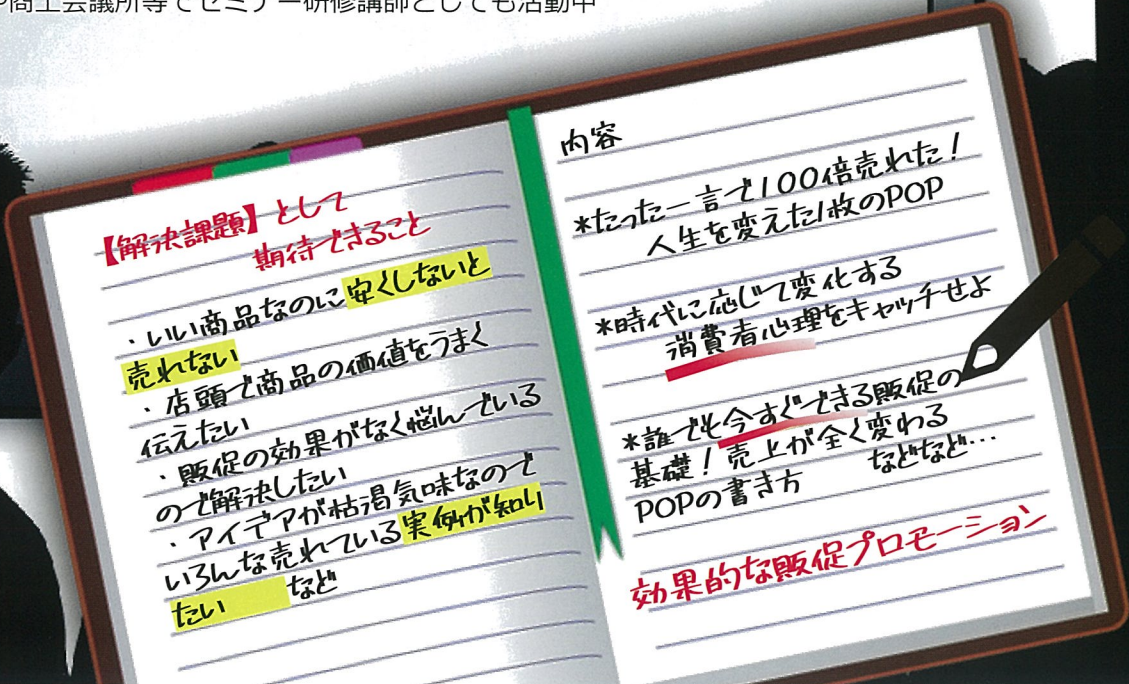 商工会議所等でセミナー研修講師としても活動中
【解決課題】として
期待できること
・いい商品なのに安くしないと
売れない
・店頭で商品の価値をうまく
伝えたい
・販促の効果がなく悩んでいる
ので解決したい
・アイデアが枯渇気味なので
いろんな売れている実例が知り
たい など
内容
*たった一言で100倍売れた!
人生を変えた1枚のPOP
*時代に応じて変化する
消費者心理をキャッチせよ
*誰でも今すぐできる販促の
基礎!売上が全く変わる
POPの書き方 などなど…
効果的な販促プロモーション